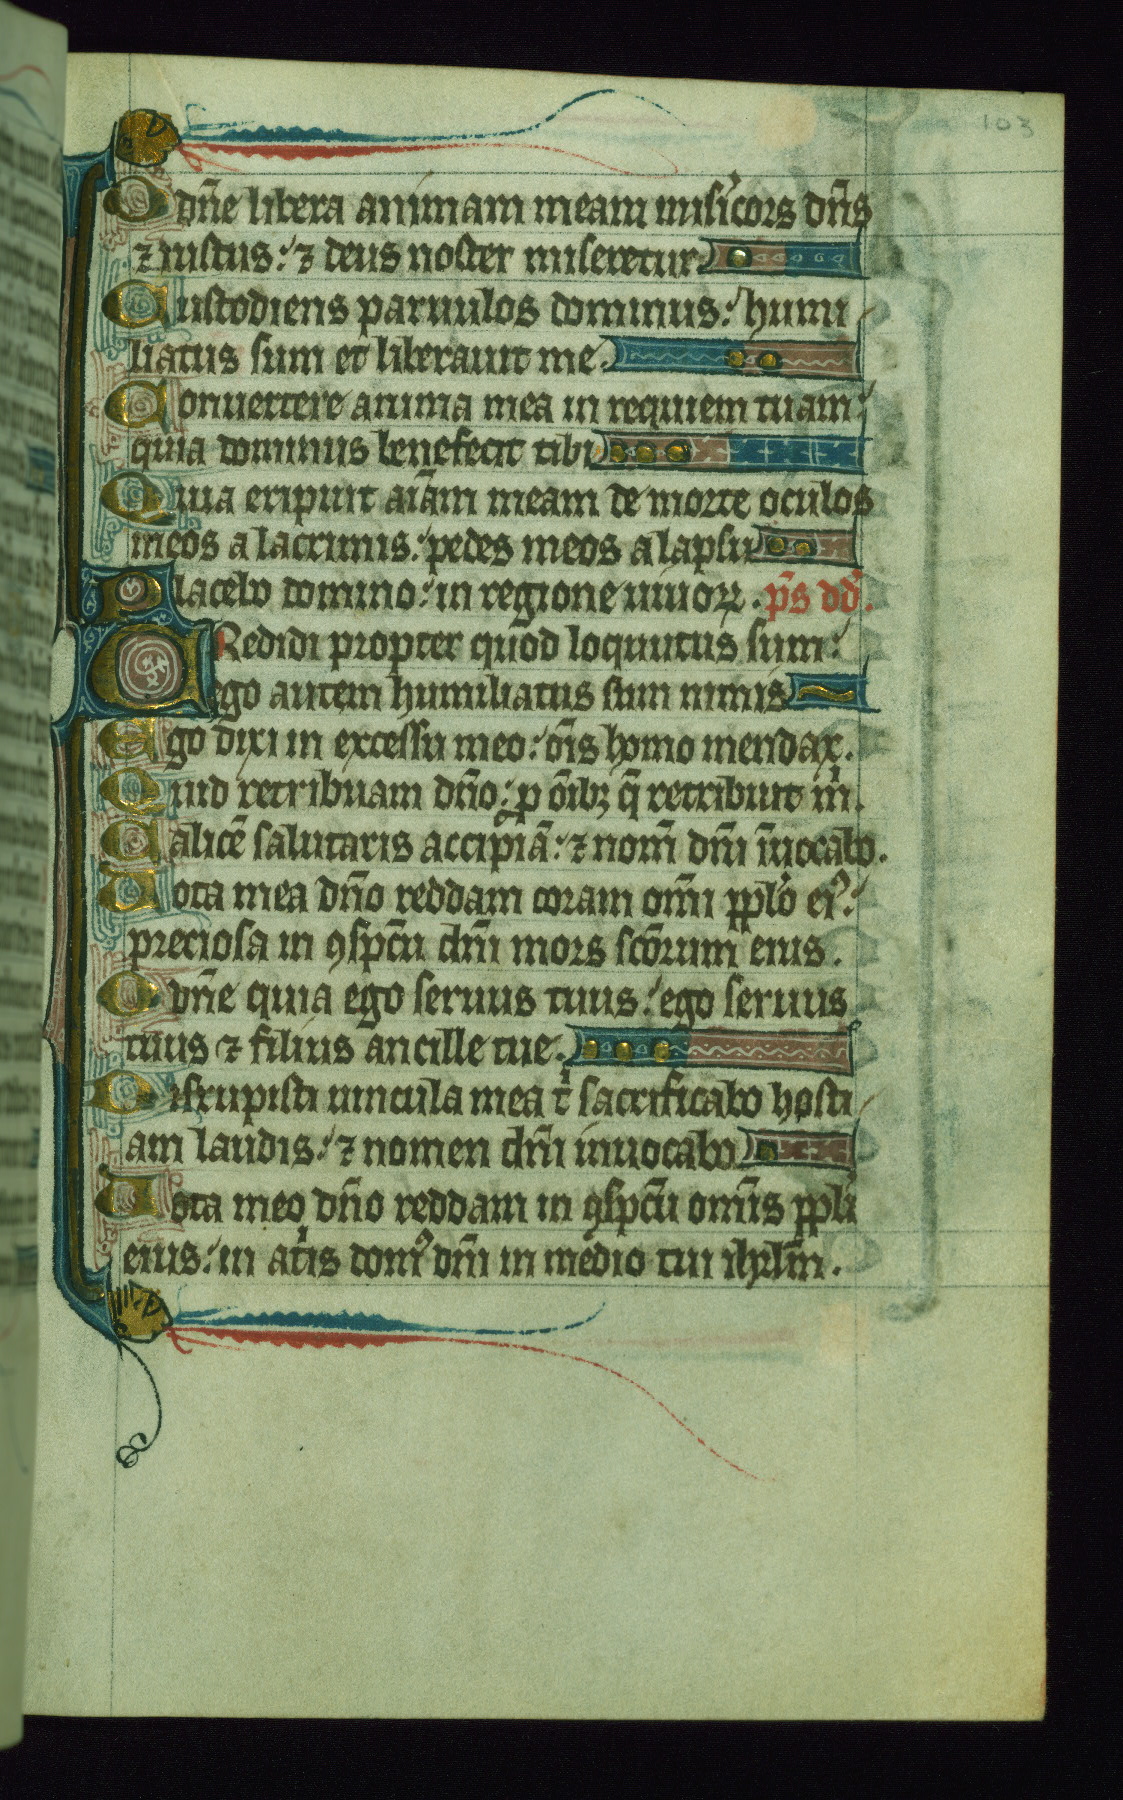 103
O dñe libera animam meam misicors dñs
⁊ iustus: ⁊ deus noster miseretur.
Custodiens paruulos dominus: humi
liatus sum et liberauit me.
Conuertere anima mea in requiem tuam:
quia dominus benefecit tibi
Quia eripuit aiãm meam de morte oculos
meos a lacrimis: pedes meos a lapsu
Placebo domino: in regione uiuoꝝ. p̃s dd̃.
CRedidi propter quod loquutus sum:
ego autem humiliatus sum nimis
Ego dixi in excessu meo: õis homo mendax.
Quid retribuam dño: p õibꝫ q̃ retribuit m̃.
Calicẽ salutaris accipiã: ⁊ nom̃ dñi ĩuocabo.
Uota mea dño reddam coram omĩ ppl̃o eiꝰ:
preciosa in ꝯspc̃u dñi mors sc̃orum eius.
O dñe quia ego seruus tuus: ego seruus
tuus ⁊ filius ancille tue.
Disrupisti uincula mea t sacrificabo hosti
am laudis: ⁊ nomen dñi inuocabo
Uota meo dño reddam in ꝯspc̃u om̃is ppl̃i
eius: in atis domꝰ dñi in medio tui ihrlm̃.